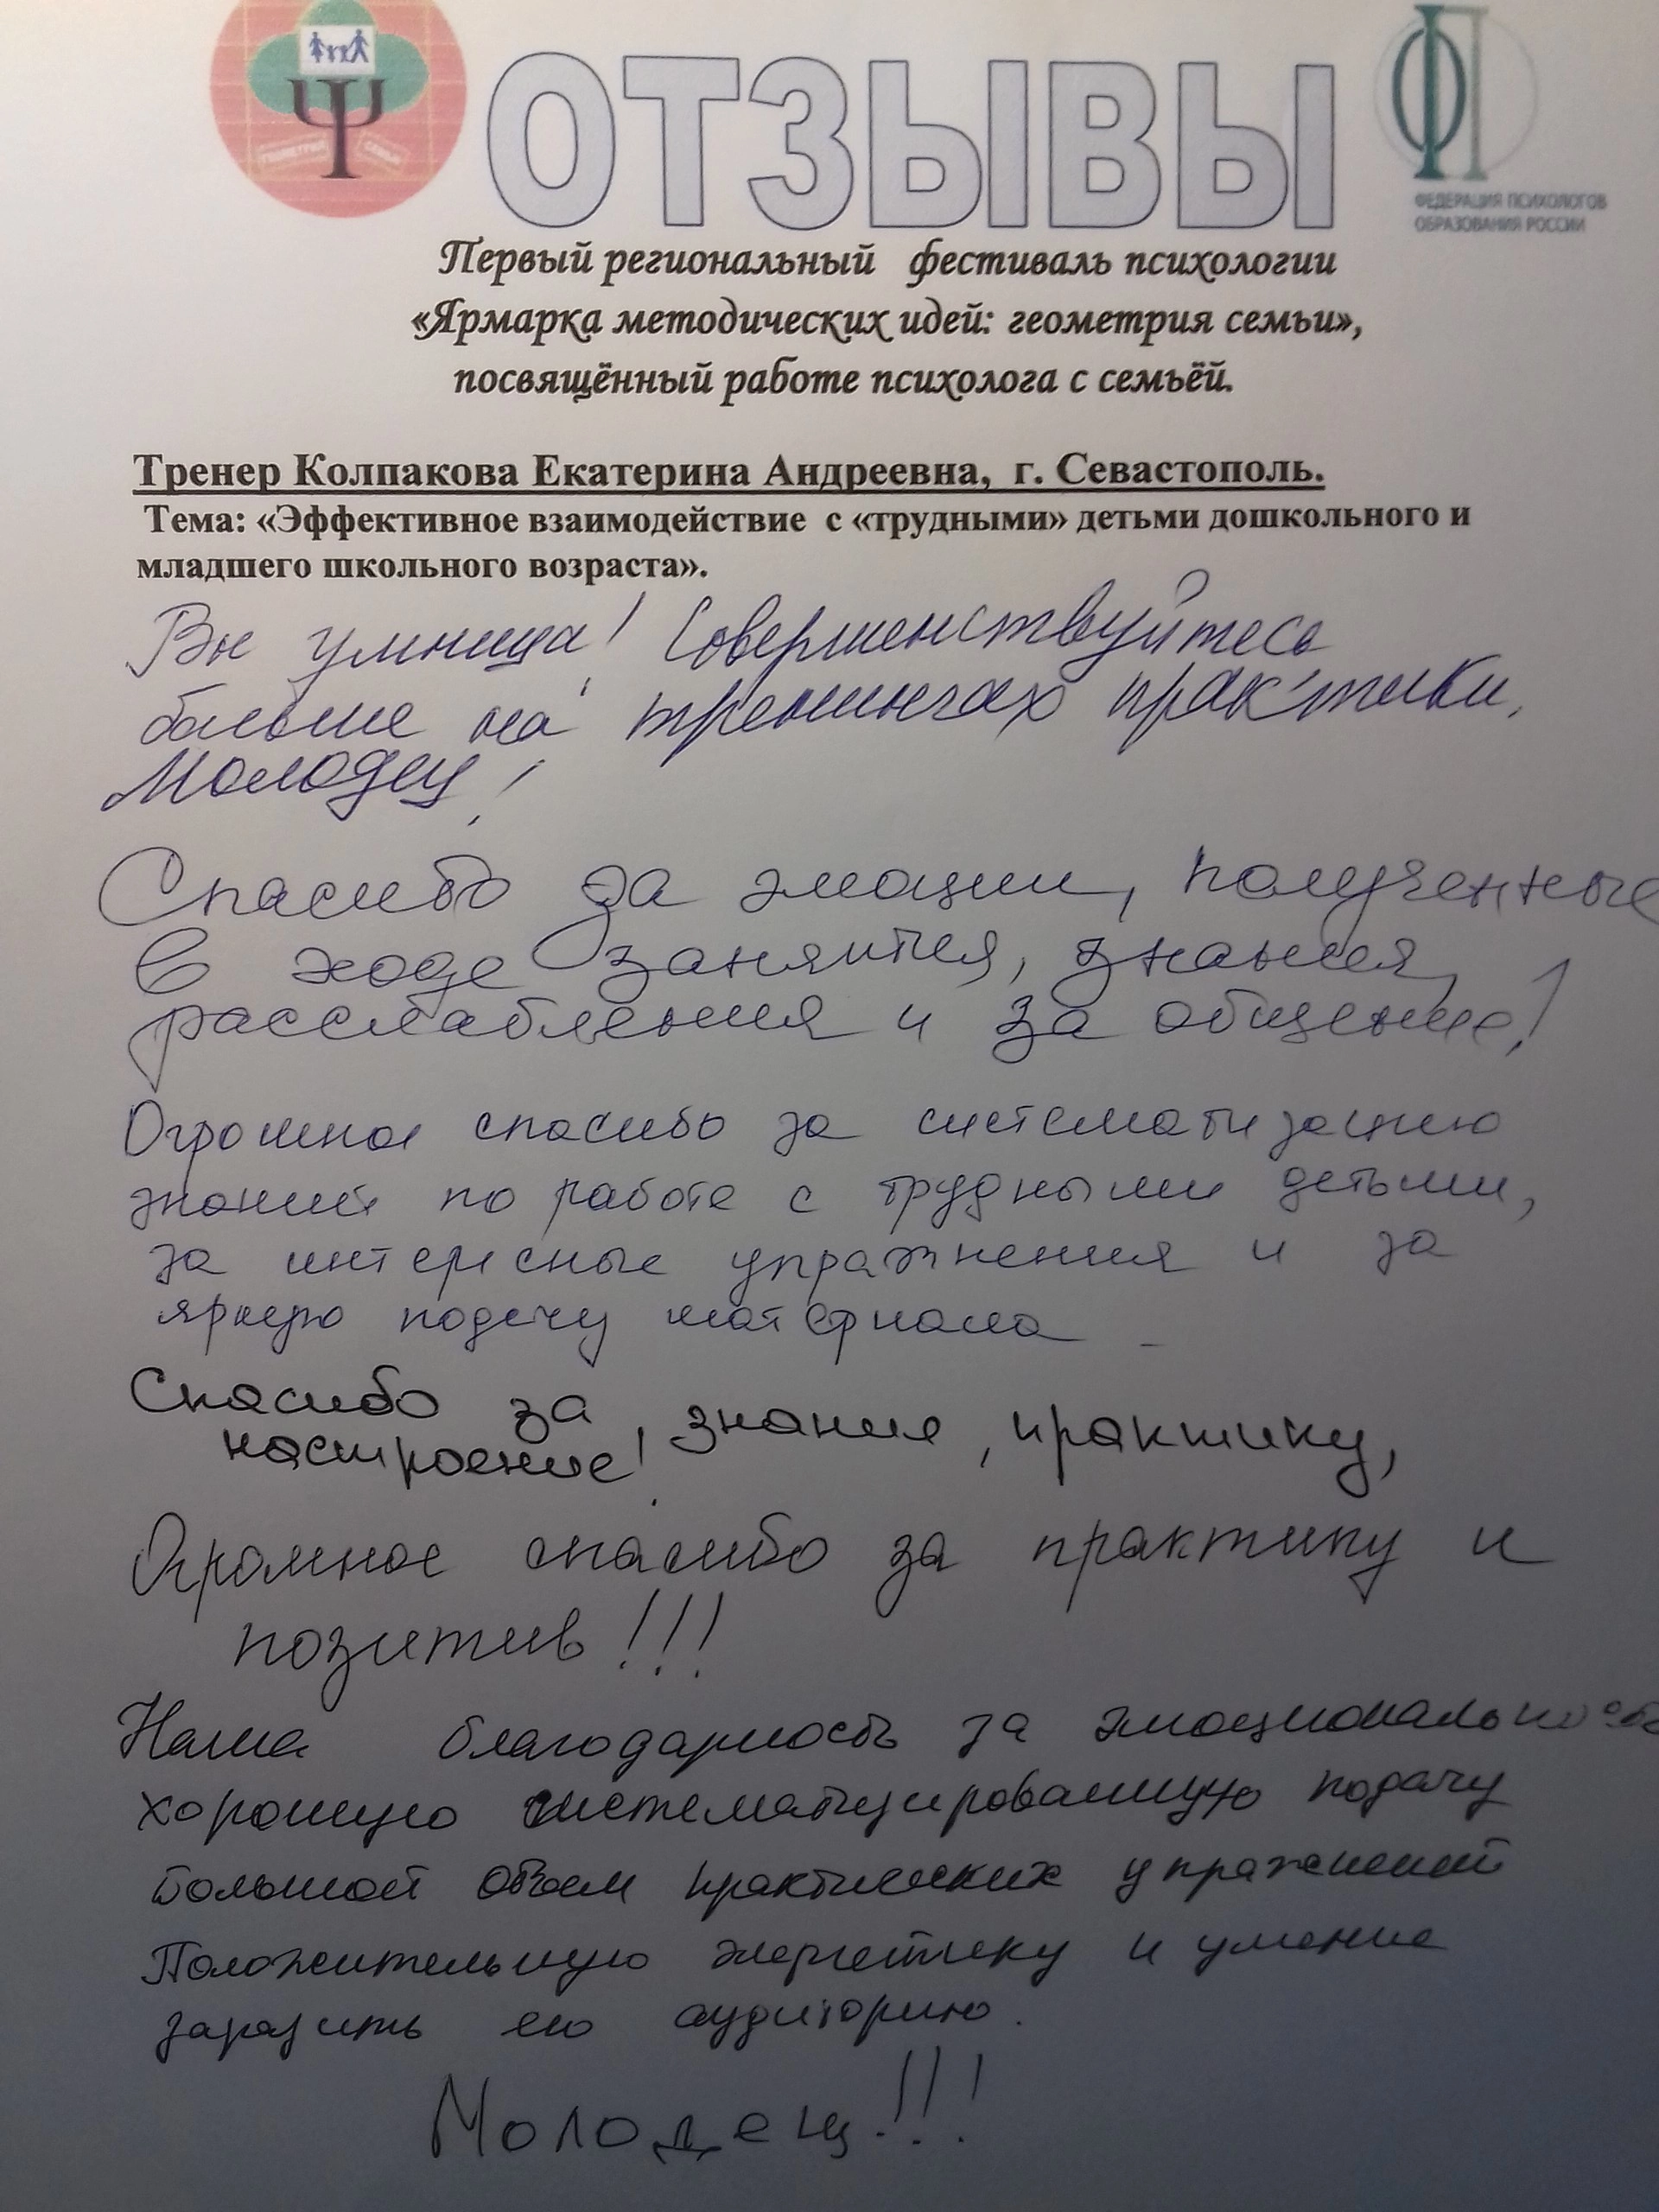 ОТЗЫВЫ
ГЕОМЕТРИЯ СЕМЬИ
ФЕДЕРАЦИЯ ПСИХОЛОГОВ
ОБРАЗОВАНИЯ РОССИИ
Первый региональный фестиваль психологии
«Ярмарка методических идей: геометрия семьи»,
посвящённый работе психолога с семьёй.
Тренер Колпакова Екатерина Андреевна, г. Севастополь.
Тема: «Эффективное взаимодействие с «трудными» детьми дошкольного и
младшего школьного возраста».
Вы умница! Совершенствуйтесь
больше на тренингах практики.
Молодец!
Спасибо за эмоции, полученные
в ходе занятия, знания,
расслабления и за общение!
Огромное спасибо за систематизацию
знаний по работе с трудными детьми,
за интересные упражнения и за
яркую подачу материала
Спасибо за знания, практику,
настроение!
Огромное спасибо за практику и
позитив!!!
Наша благодарность за эмоциональность
хорошую систематизированную подачу
Большой объем практических упражнений
Положительную энергетику и умение
заразить ею аудиторию.
Молодец!!!